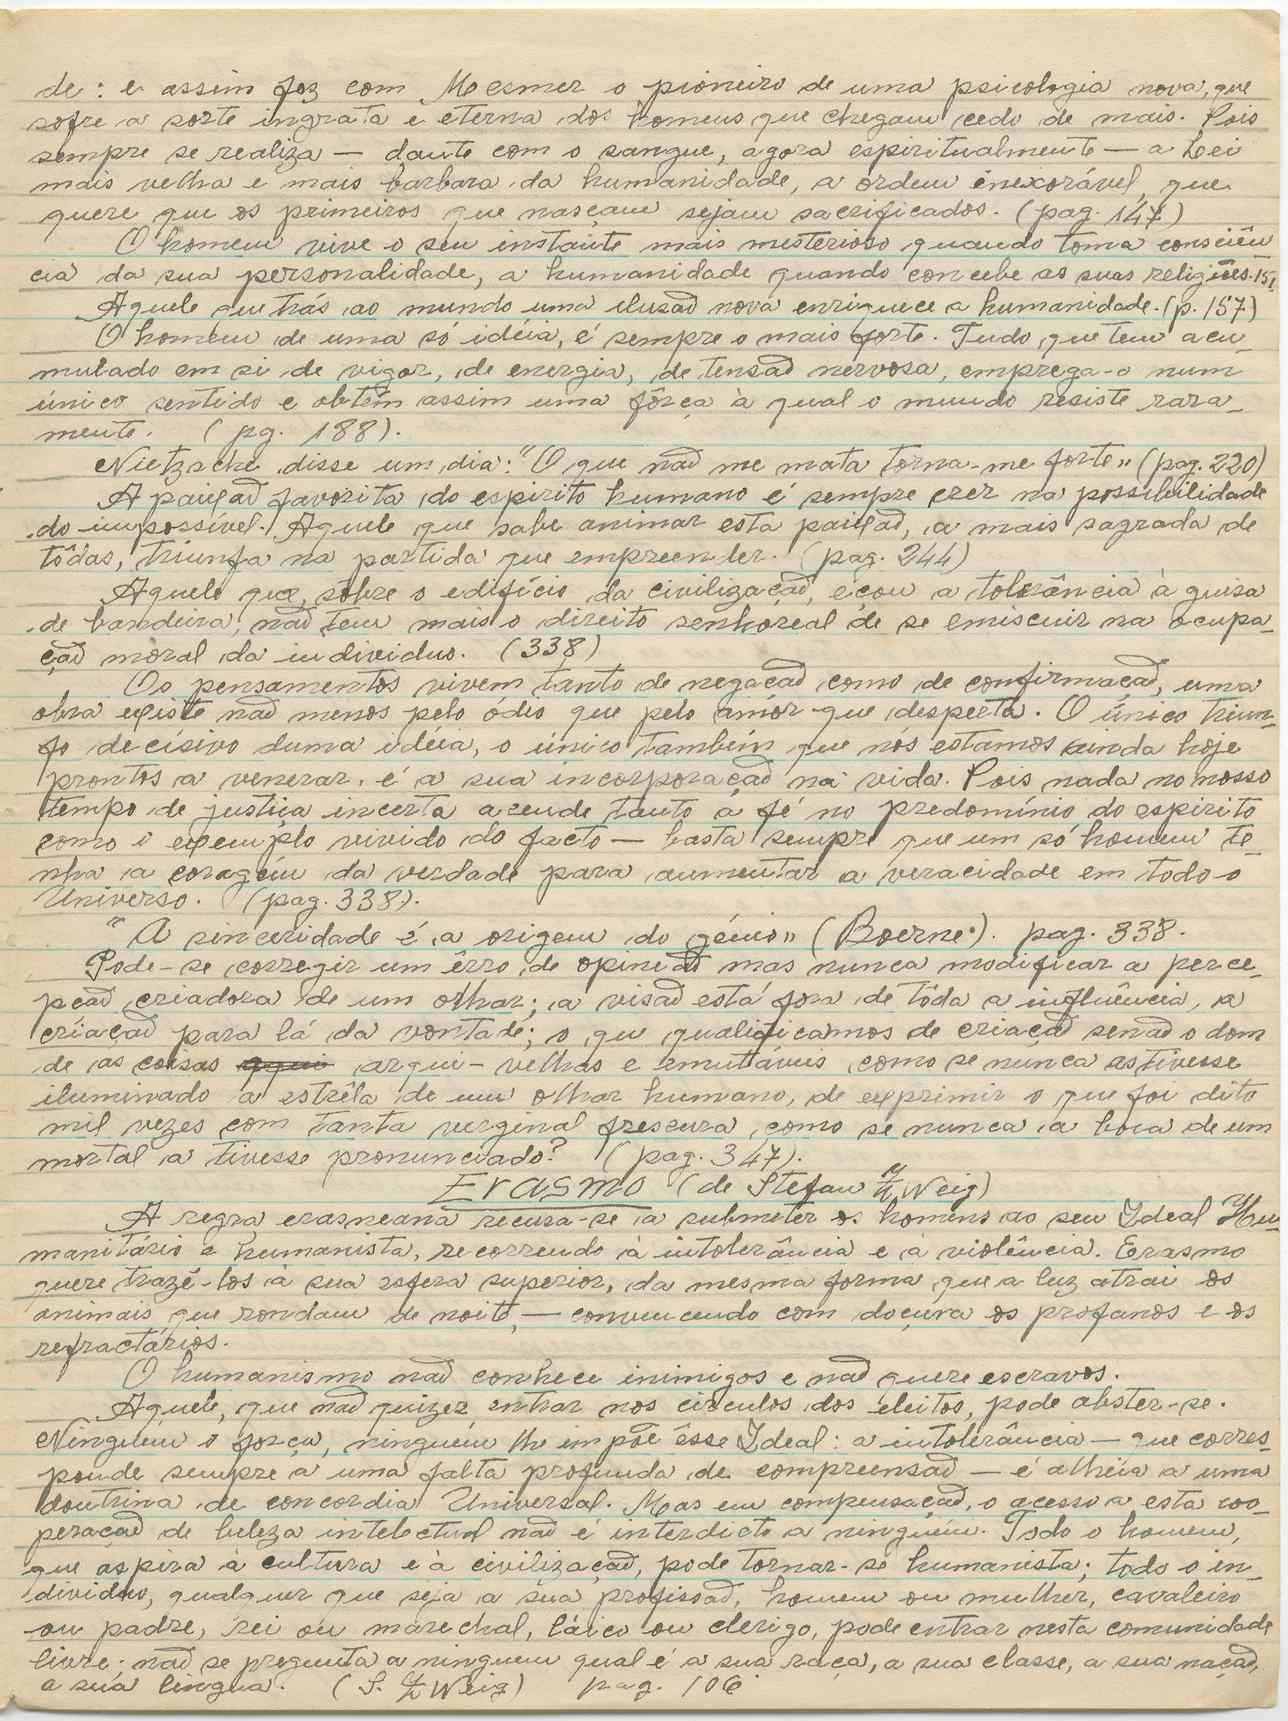 de: e assim foz com Moesmer o pioneiro de uma psicologia nova, que
sofre a sorte ingrata e eterna dos homens que chegam cedo de mais. Pois
sempre se realiza — dante com o sangue, agora espiritualmente — a Lei
mais velha e mais barbara da humanidade, a ordem inexorável, que
quere que os primeiros que nasçam sejam sacrificados. (pag. 147)
O homem vive o seu instante mais mesterioso quando toma consciên
cia da sua personalidade, a humanidade quando concebe as suas religiões. 151
Aquele que trás ao mundo uma ilusaõ nova enriquece a humanidade. (p. 157)
O homem de uma só idéia, é sempre o mais forte. Tudo que tem acu-
mulado em si de vigor, de energia, de tensaõ nervosa, emprega-o num
único sentido e obtém assim uma fôrça à qual o mundo resiste rara-
mente. (pg. 188).
Nietzache disse um dia: "O que naõ me mata torna-me forte" (pag. 220)
A paixaõ favorita do espirito humano é sempre crer na possibilidade
do impossível. Aquele que sabe animar esta paixaõ, a mais sagrada de
tôdas, triunfa na partida que empreender. (pag. 244)
Aquele que, sôbre o edifício da civilizaçaõ, içou a tolerância à guisa
de bandeira, naõ tem mais o direito senhoreal de se emiscuir na ocupa-
çaõ moral da individuo. (338)
Os pensamentos vivem tanto de negaçaõ como de confirmaçaõ, uma
obra existe naõ menos pelo odio que pelo amor que desperta. O único triun-
fo decisivo duma idéia, o único também que nós estamos ainda hoje
prontos a venerar, é a sua incorporaçaõ na vida. Pois nada no nosso
tempo de justiça incerta acende tanto a fé no predomínio do espirito
como o exemplo vivido do facto — basta sempre que um só homem te-
nha a coragem da verdade para aumentar a veracidade em todo o
Universo. (pag. 338).
"A sinceridade é a origem do génio" (Boerne). pag. 338.
Pode-se corregir um êrro de opiniaõ mas nunca modificar a perce-
pçaõ criadora de um olhar; a visaõ está fora de tôda a influência, a
criaçaõ para lá da vontade; o que qualificamos de criaçaõ senaõ o dom
de as coisas aqui arqui-velhas e emutáveis como se nunca as tivesse
iluminado a estrêla de um olhar humano, de exprimir o que foi dito
mil vezes com tanta verginal frescura como se nunca a boca de um
mortal a tivesse pronunciado? (pag. 347).
Erasmo (de Stefan Zweig)
A regra erasneana recusa-se a submeter os homens ao seu Ideal Hu-
manitário e humanista, recorrendo à intolerância e à violência. Erasmo
quere trazê-los à sua esfera superior, da mesma forma que a luz atrai os
animais que rondam de noite, — convencendo com doçura os profanos e os
refractários.
O humanismo naõ conhece inimigos e naõ quere escravos.
Aquele, que naõ quizer entrar nos circulos dos eleitos, pode abster-se.
Ninguém o força, ninguém lhe impõe êsse Ideal: a intolerância — que corres-
ponde sempre a uma falta profunda de compreensaõ — é alhéia a uma
doutrina de concordia Universal. Mas em compensaçaõ, o acesso a esta coo-
peraçaõ de beleza intelectual naõ é interdicto a ninguém. Todo o homem,
que aspira à cultura e à civilizaçaõ, pode tornar-se humanista; todo o in-
dividuo, qualquer que seja a sua profissaõ, homem ou mulher, cavaleiro
ou padre, rei ou marechal, láico ou clerigo, pode entrar nesta comunidade
livre; naõ se pregunta a ninguem qual é a sua raça, a sua classe, a sua naçaõ,
a sua lingua. (S. Zweig) pag. 106